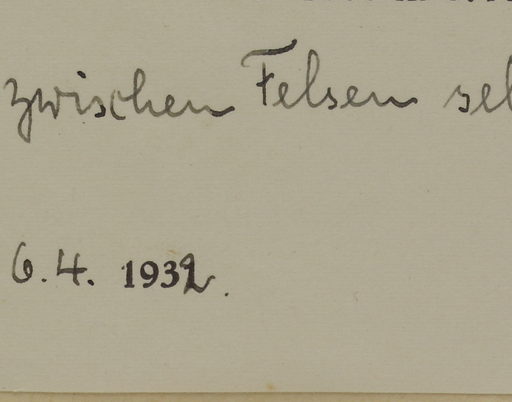 zwischen Felsen
6.4. 1932.